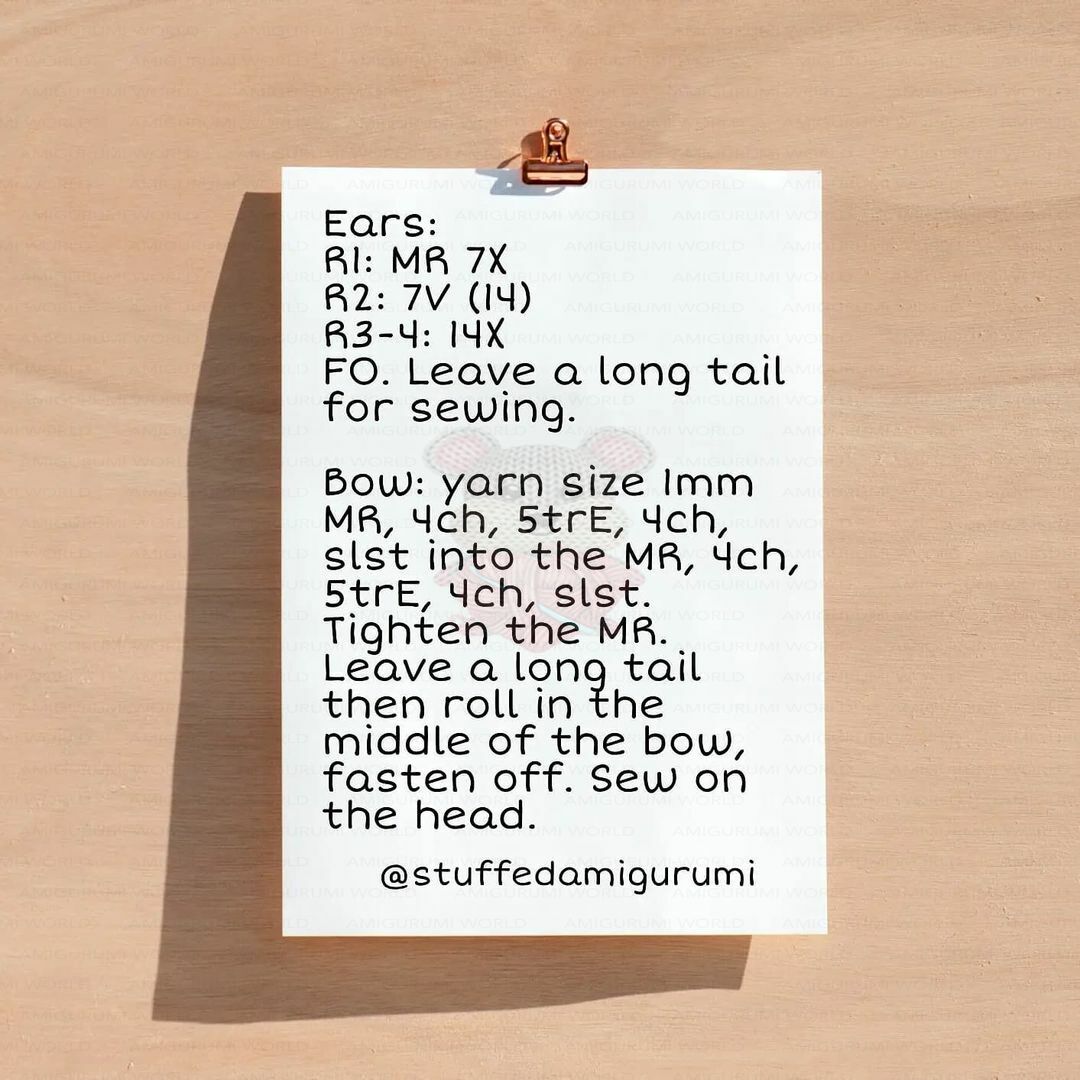 Ears:
R1: MR 7X
R2: 7V (14)
R3-4: 14X
FO. Leave a long tail
for sewing.
Bow: yarn size 1mm
MR, 4ch, 5trE, 4ch,
slst into the MR, 4ch,
5trE, 4ch, slst.
Tighten the MR.
Leave a long tail
then roll in the
middle of the bow,
fasten off. Sew on
the head.
@stuffedamigurumi
AMIGURUMI WORLD